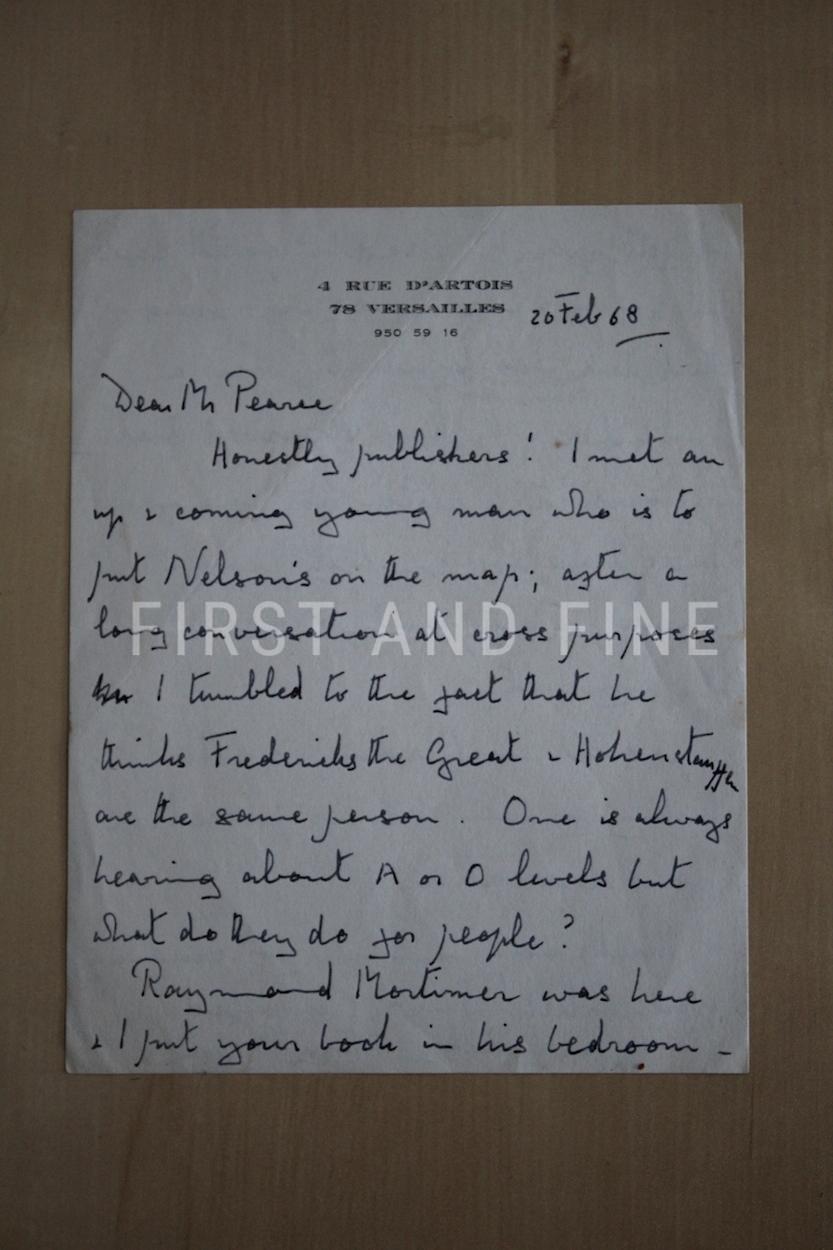 4 RUE D'ARTOIS
78 VERSAILLES
950 59 16
20 Feb 68
Dear Mr Pearce
Honestly publishers! I met an
up & coming young man who is to
put Nelson's on the map; after a
long conversation at cross purposes
I tumbled to the fact that he
thinks Fredericks the Great & Hohenstauffen
are the same person. One is always
hearing about A or O levels but
what do they do for people?
Raymond Mortimer was here
& I put your book in his bedroom -
FIRST AND FINE